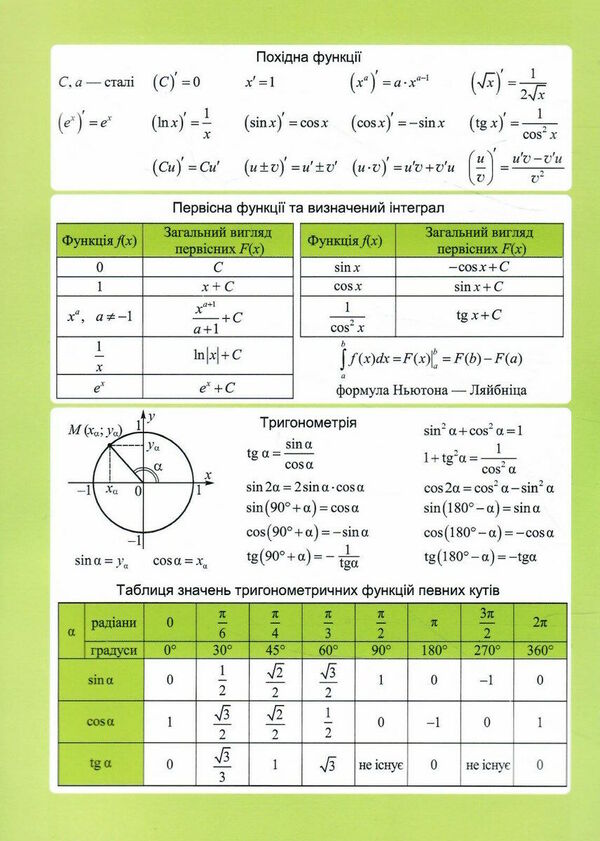 Похідна функції
C, a — сталі (C)′ = 0 x′ = 1 (xᵃ)′ = a·xᵃ⁻¹ (√x)′ = 1/(2√x)
(eˣ)′ = eˣ (ln x)′ = 1/x (sin x)′ = cos x (cos x)′ = −sin x (tg x)′ = 1/cos² x
(Cu)′ = Cu′ (u ± v)′ = u′ ± v′ (u·v)′ = u′v + v′u (u/v)′ = (u′v − v′u)/v²
Первісна функції та визначений інтеграл
Функція f(x) Загальний вигляд первісних F(x)
0 C
1 x + C
xᵃ, a ≠ −1 xᵃ⁺¹/(a+1) + C
1/x ln|x| + C
eˣ eˣ + C
Функція f(x) Загальний вигляд первісних F(x)
sin x −cos x + C
cos x sin x + C
1/cos² x tg x + C
∫ₐᵇ f(x)dx = F(x)|ₐᵇ = F(b) − F(a)
формула Ньютона — Ляйбніца
M (xα; yα) y 1 yα α x −1 xα 0 1 −1
sin α = yα cos α = xα
Тригонометрія
tg α = sin α/cos α
sin 2α = 2 sin α · cos α
sin(90° + α) = cos α
cos(90° + α) = −sin α
tg(90° + α) = − 1/tgα
sin² α + cos² α = 1
1 + tg² α = 1/cos² α
cos 2α = cos² α − sin² α
sin(180° − α) = sin α
cos(180° − α) = −cos α
tg(180° − α) = −tgα
Таблиця значень тригонометричних функцій певних кутів
α радіани 0 π/6 π/4 π/3 π/2 π 3π/2 2π
градуси 0° 30° 45° 60° 90° 180° 270° 360°
sin α 0 1/2 √2/2 √3/2 1 0 −1 0
cos α 1 √3/2 √2/2 1/2 0 −1 0 1
tg α 0 √3/3 1 √3 не існує 0 не існує 0